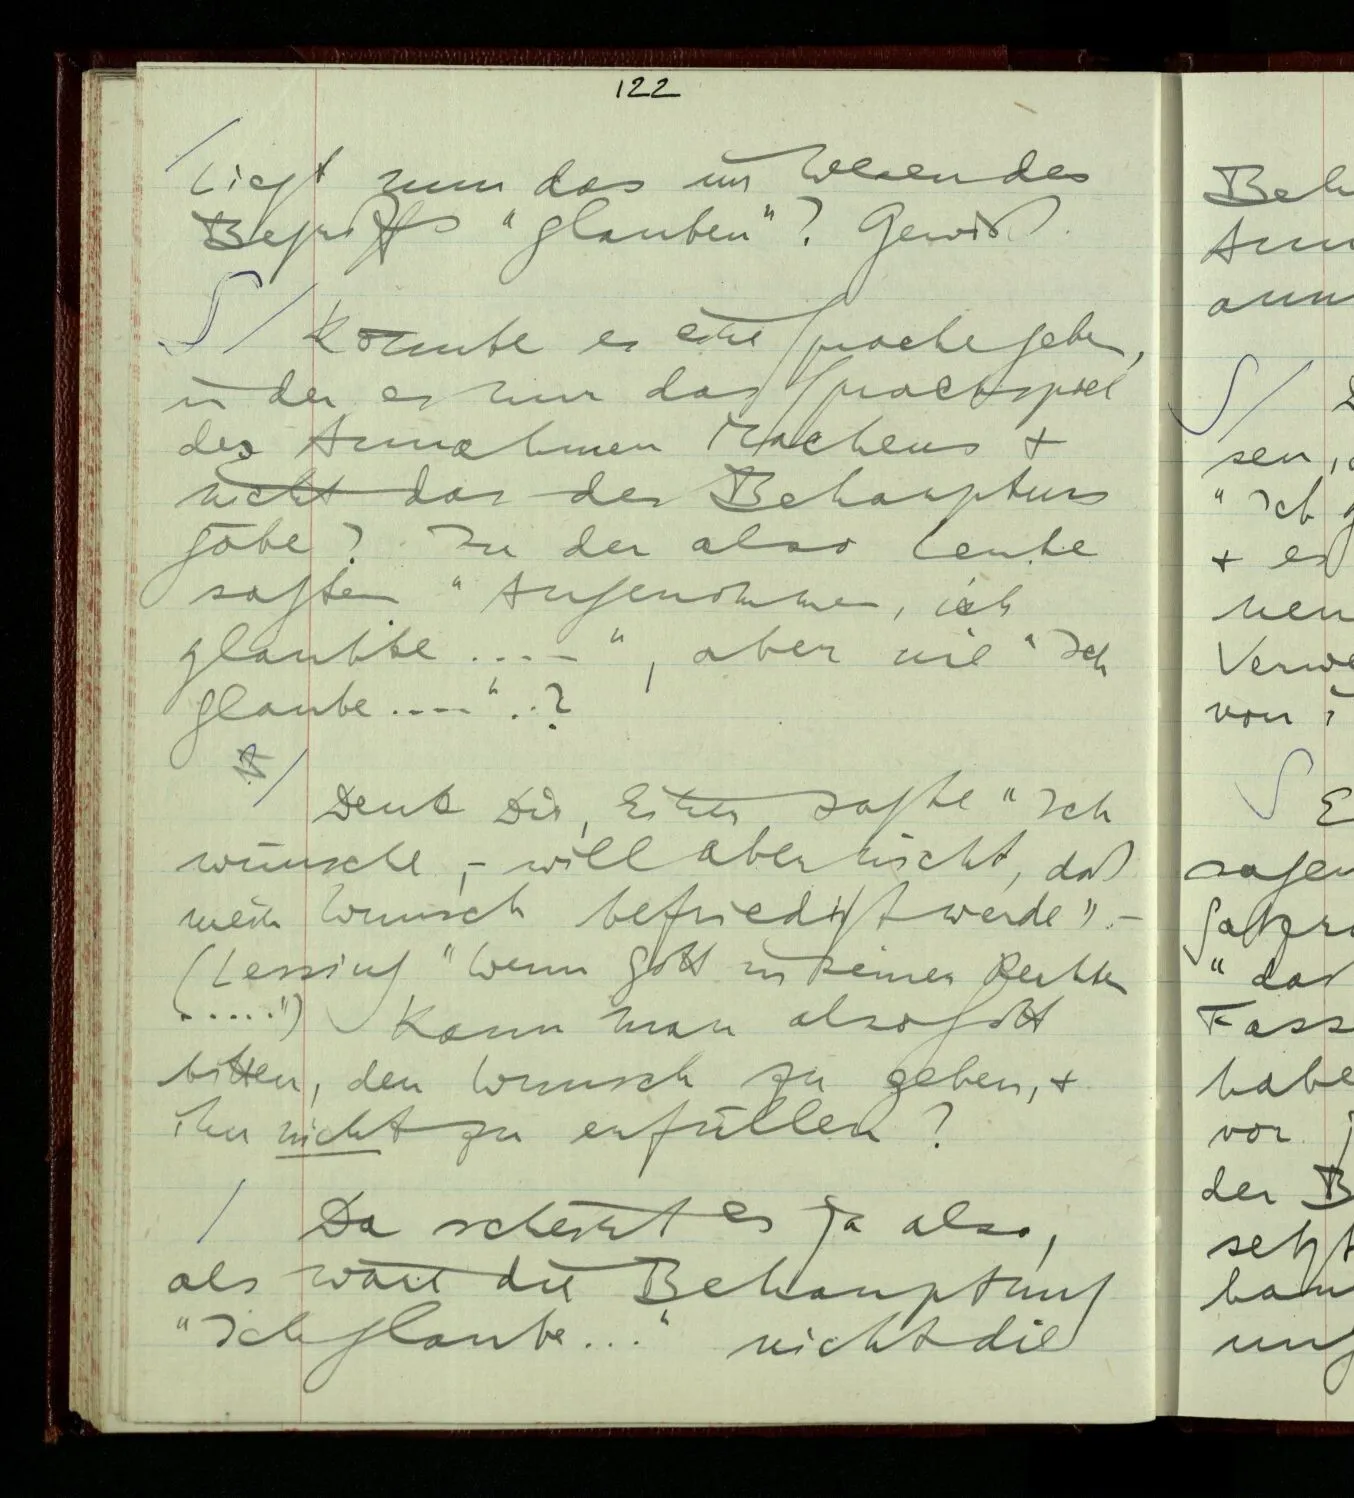 122
/ Liegt nun das im Wesen des
Begriffs "glauben"? Gewiß.
S / Könnte es eine Sprache geben,
in der es nur das Sprachspiel
des Annahmen Machens +
nicht das des Behauptens
gäbe? In der also Leute
sagten "Angenommen, ich
glaubte ....", aber nie "Ich
glaube ....".?
/ Denk Dir, Einer sagte "Ich
wünsche, – will aber nicht, daß
mein Wunsch befriedigt werde". –
(Lessing "Wenn Gott in seiner Rechten
.....") Kann man also Gott
bitten, den Wunsch zu geben, +
ihn nicht zu erfüllen?
/ Da scheint es ja also,
als wäre die Behauptung
"Ich glaube..." nicht die
Beh
Ann
ann
S /
sen,
"Ich g
+ es
nen
Verwe
von
S E
sagen
Satzra
"das
Fass
habe
vor j
der B
setzt
hau
ung